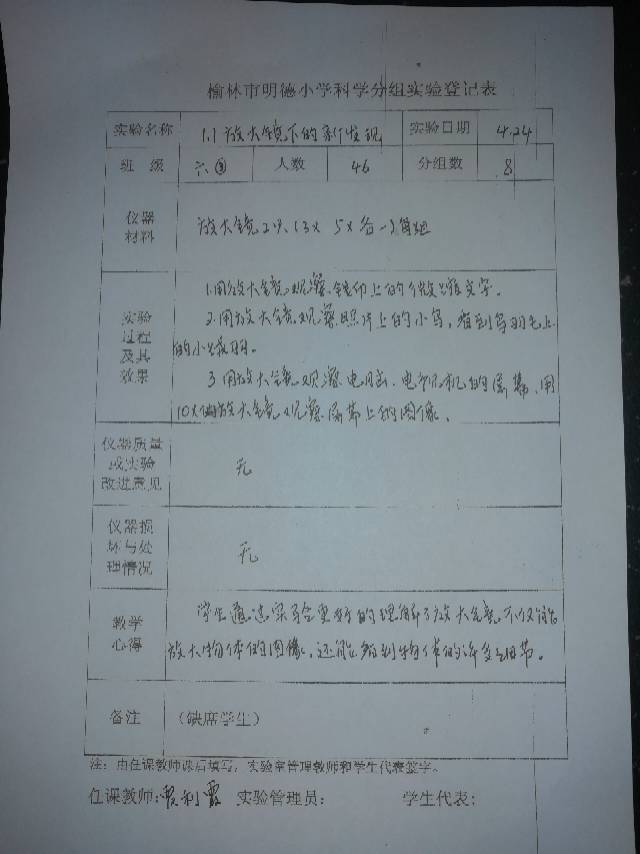 榆林市明德小学科学分组实验登记表
实验名称 1.1 放大镜下的新发现 实验日期 4.24
班 级 六.③ 人数 46 分组数 8
仪器
材料 放大镜 5× 各一
实验
过程
及其
效果
1.用放大镜观察钱币上的 文字。
2.用放大镜观察照片上的小鸟,看到鸟羽毛上
的小
3.用放大镜观察电脑、电视机的屏幕、用
10×的放大镜观察屏幕上的图像.
仪器质量
或实验
改进意见 无
仪器损
坏与处
理情况 无
教学
心得
学生通过实验更好的理解了放大镜不仅能
放大物体的图像,还能看到物体的许多细节。
备注 (缺席学生)
注:由任课教师课后填写,实验室管理教师和学生代表签字。
任课教师: 利霞 实验管理员: 学生代表: